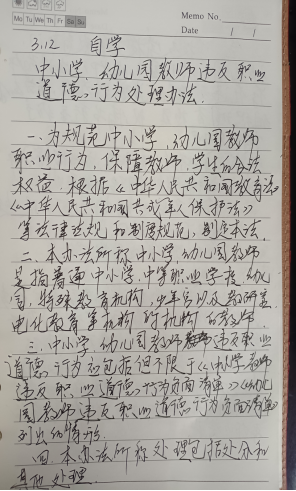 Memo No.
Mo Tu We Th Fr Sa Su
Date / /
3.12 自学
中小学、幼儿园教师违反职业
道德行为处理办法.
一、为规范中小学、幼儿园教师
职业行为,保障教师、学生的合法
权益,根据《中华人民共和国教育法》
《中华人民共和国未成年人保护法》
等法律法规和制度规范,制定本法.
二、本办法所称中小学、幼儿园教师
是指普通中小学、中等职业学校、幼儿
园、特殊教育机构、少年宫以及教研室、
电化教育等机构的教师.
三、中小学、幼儿园教师违反职业
道德行为包括但不限于《中小学教师
违反职业道德行为负面清单》《幼儿
园教师违反职业道德行为负面清单》
列出的情形.
四、本办法所称处理包括处分和
其他处理.